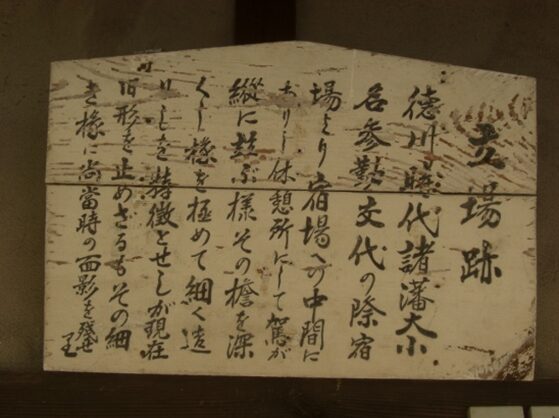 立場跡
徳川時代諸藩大小
名参勤交代の際宿
場より宿場への中間に
ありし休憩所にして駕が
縦に並ぶ様その檐を深
くし椽を極めて細く造
りしを特徴とせしが現在
旧形を止めざるもその細
き椽に尚當時の面影を残せ
り